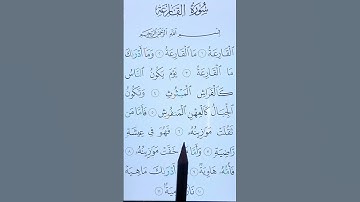 سُورَةُ القَارِعَةِ
بِسْمِ اللَّهِ الرَّحْمَٰنِ الرَّحِيمِ
الْقَارِعَةُ ١ مَا الْقَارِعَةُ ٢ وَمَا أَدْرَىٰكَ
مَا الْقَارِعَةُ ٣ يَوْمَ يَكُونُ النَّاسُ
كَالْفَرَاشِ الْمَبْثُوثِ ٤ وَتَكُونُ
الْجِبَالُ كَالْعِهْنِ الْمَنفُوشِ ٥ فَأَمَّا مَن
ثَقُلَتْ مَوَٰزِينُهُۥ ٦ فَهُوَ فِي عِيشَةٍ
رَّاضِيَةٍ ٧ وَأَمَّا خَفَّتْ مَوَٰزِينُهُۥ ٨
فَأُمُّهُۥ هَاوِيَةٌ ٩ أَدْرَىٰكَ مَا هِيَهْ ١٠
نَارٌ ١١